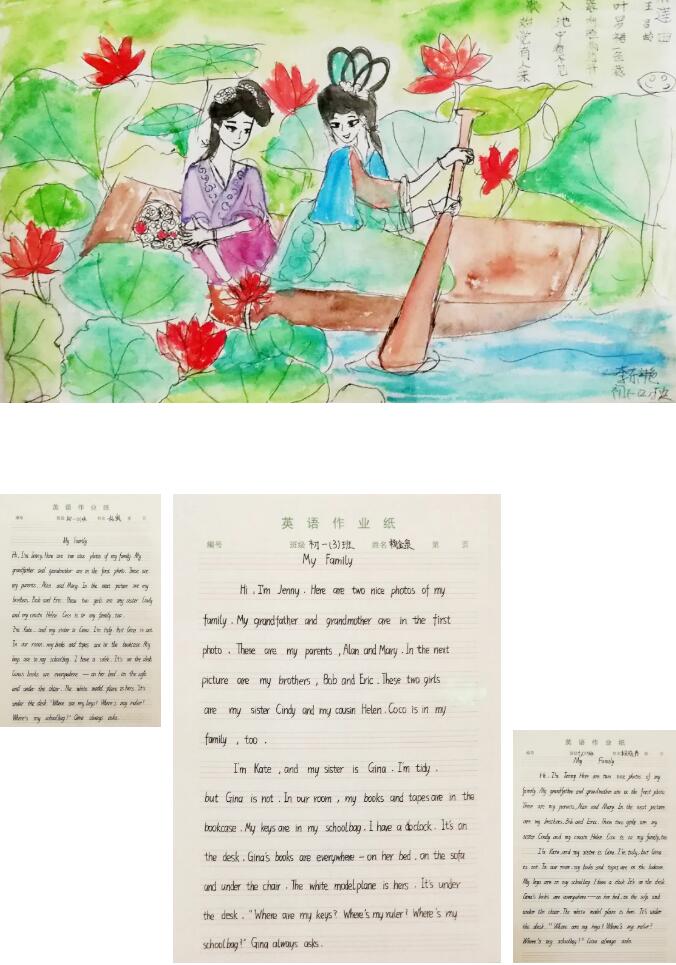 王昌龄
入池中看不见
英语作业纸
编号 班级 初一(3)班 姓名 第 页
My Family
Hi, I'm Jenny. Here are two nice photos of my family. My
grandfather and grandmother are in the first photo. These are
my parents, Alan and Mary. In the next picture are my
brothers, Bob and Eric. These two girls are my sister Cindy
and my cousin Helen. Coco is in my family, too.
I'm Kate, and my sister is Gina. I'm tidy, but Gina is not.
In our room, my books and tapes are in the bookcase. My
keys are in my schoolbag. I have a clock. It's on the desk.
Gina's books are everywhere — on her bed, on the sofa
and under the chair. The white model plane is hers. It's
under the desk. "Where are my keys? Where's my ruler?
Where's my schoolbag?" Gina always asks.
英语作业纸
编号 班级 初一(3)班 姓名 第 页
My Family
Hi, I'm Jenny. Here are two nice photos of my
family. My grandfather and grandmother are in the first
photo. These are my parents, Alan and Mary. In the next
picture are my brothers, Bob and Eric. These two girls
are my sister Cindy and my cousin Helen. Coco is in my
family, too.
I'm Kate, and my sister is Gina. I'm tidy.
but Gina is not. In our room, my books and tapes are in the
bookcase. My keys are in my schoolbag. I have a clock. It's on
the desk. Gina's books are everywhere — on her bed, on the sofa
and under the chair. The white model plane is hers. It's under
the desk. "Where are my keys? Where's my ruler? Where's my
schoolbag?" Gina always asks.
英语作业纸
编号 班级 姓名 第 页
My Family
Hi, I'm Jenny. Here are two nice photos of my
family. My grandfather and grandmother are in the first photo.
These are my parents, Alan and Mary. In the next picture
are my brothers, Bob and Eric. These two girls are my
sister Cindy and my cousin Helen. Coco is in my family, too.
I'm Kate, and my sister is Gina. I'm tidy, but Gina
is not. In our room, my books and tapes are in the bookcase.
My keys are in my schoolbag. I have a clock. It's on the desk.
Gina's books are everywhere — on her bed, on the sofa and
under the chair. The white model plane is hers. It's under
the desk. "Where are my keys? Where's my ruler?
Where's my schoolbag?" Gina always asks.